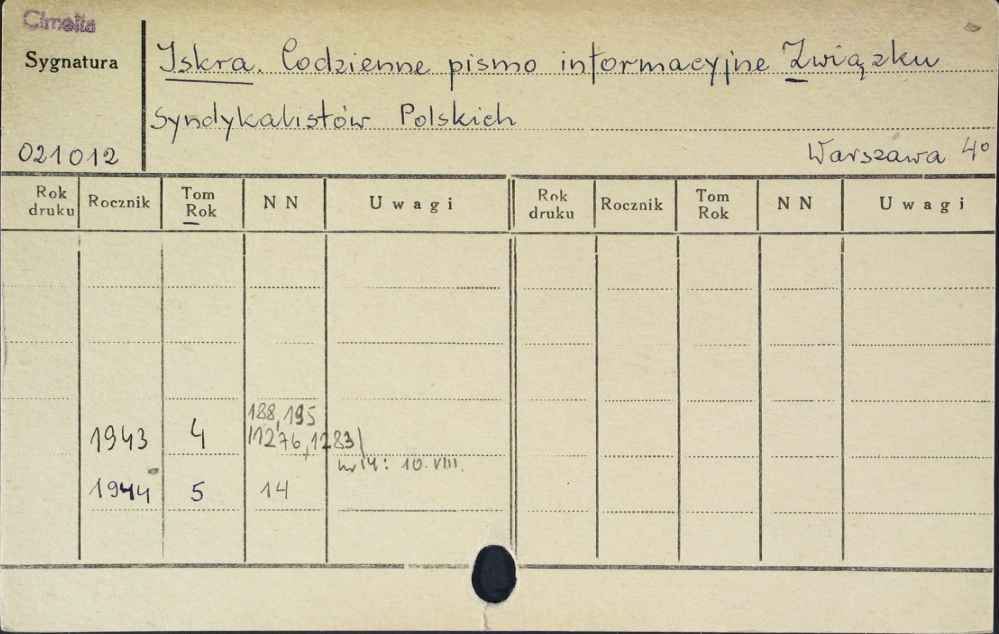 Cimelia
Sygnatura
Iskra. Codzienne pismo informacyjne Związku
Syndykalistów Polskich
021012
Warszawa 4°
Rok druku Rocznik Tom Rok NN Uwagi Rok druku Rocznik Tom Rok NN Uwagi
188,195
1943 4 /1276,1283/
nr 14: 10.VIII.
1944 5 14